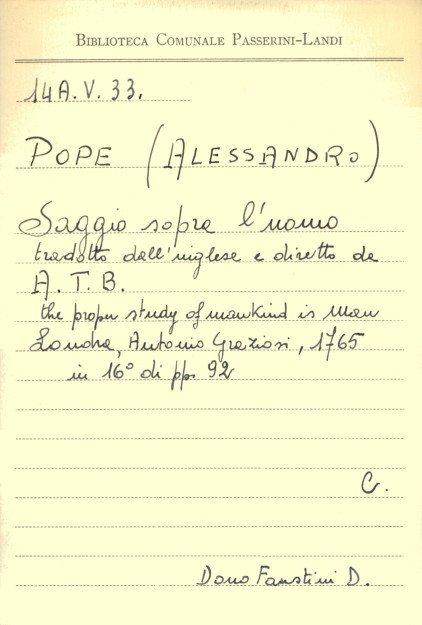 BIBLIOTECA COMUNALE PASSERINI-LANDI
14A.V.33.
POPE (ALESSANDRO)
Saggio sopra l'uomo
tradotto dall'inglese e diretto da
A. T. B.
the proper study of mankind is Man
Londra, Antonio Graziosi, 1765
in 16° di pp. 92
C.
Dono Faustini D.